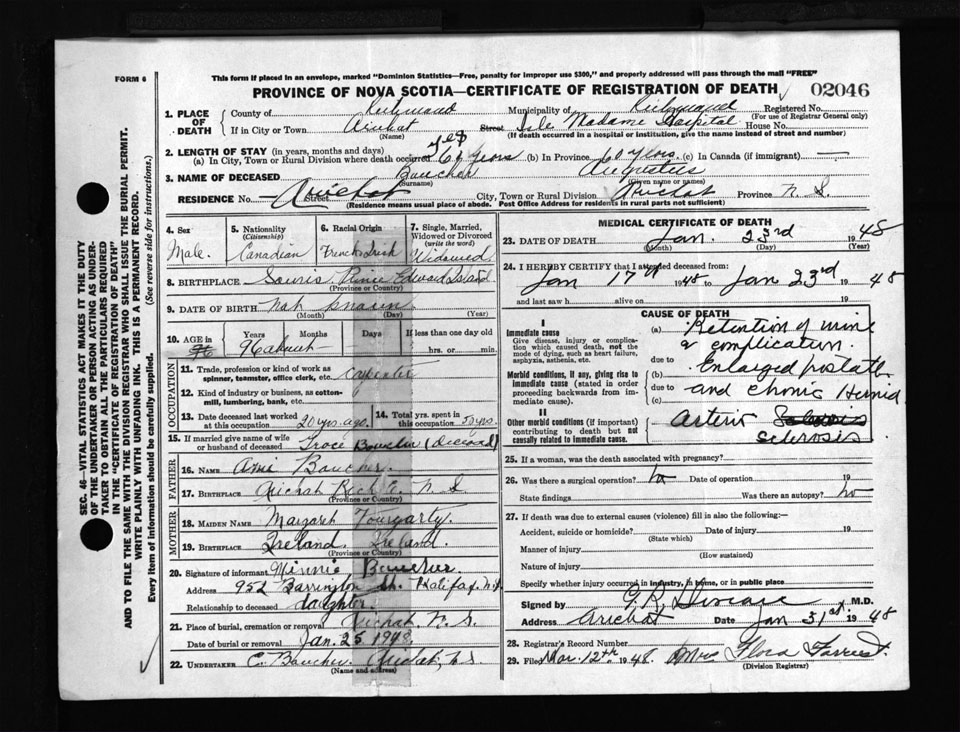 FORM 6
This form if placed in an envelope, marked "Dominion Statistics—Free, penalty for improper use $300," and properly addressed will pass through the mail "FREE"
PROVINCE OF NOVA SCOTIA—CERTIFICATE OF REGISTRATION OF DEATH
02046
1. PLACE OF DEATH
County of Richmond Municipality of Richmond Registered No.
(For use of Registrar General only)
If in City or Town Arichat Street Isle Madame Hospital House No.
(Name) (If death occurred in a hospital or institution, give the name instead of street and number)
2. LENGTH OF STAY (in years, months and days)
(a) In City, Town or Rural Division where death occurred years (b) In Province 60 years. (c) In Canada (if immigrant) —
3. NAME OF DECEASED Boucher Augustus
(Surname) (Given name or names)
RESIDENCE No. Arichat Street City, Town or Rural Division Arichat Province N. S.
(Residence means usual place of abode. Post Office Address for residents in rural parts not sufficient)
4. Sex Male.
5. Nationality (Citizenship) Canadian
6. Racial Origin French Irish
7. Single, Married, Widowed or Divorced (write the word) Widowed
8. BIRTHPLACE Souris Prince Edward Island
(Province or Country)
9. DATE OF BIRTH Not known
(Month) (Day) (Year)
10. AGE in Years Months Days If less than one day old
96 hrs. or min.
OCCUPATION
11. Trade, profession or kind of work as spinner, teamster, office clerk, etc. Carpenter
12. Kind of industry or business, as cotton-mill, lumbering, bank, etc.
13. Date deceased last worked at this occupation 20 yrs. ago.
14. Total yrs. spent in this occupation 50 yrs.
15. If married give name of wife or husband of deceased Boucher (deceased)
FATHER
16. Name Boucher
17. Birthplace Arichat Rich Co. N. S.
(Province or Country)
MOTHER
18. Maiden Name Margaret
19. Birthplace Ireland. Ireland.
(Province or Country)
20. Signature of informant Minnie Boucher
Address 952 Barrington St. Halifax, N.S.
Relationship to deceased daughter.
21. Place of burial, cremation or removal Arichat, N. S.
Date of burial or removal Jan. 25 1948
22. UNDERTAKER C. Boucher Arichat, N.S.
(Name and address)
MEDICAL CERTIFICATE OF DEATH
23. DATE OF DEATH Jan. 23rd 1948
(Month) (Day) (Year)
24. I HEREBY CERTIFY that I attended deceased from:
Jan 1948 to Jan 23rd 48
and last saw h alive on 19
CAUSE OF DEATH
I
Immediate cause
Give disease, injury or complication which caused death, not the mode of dying, such as heart failure, asphyxia, asthenia, etc.
(a) Retention of urine
& complication.
due to
Morbid conditions, if any, giving rise to immediate cause (stated in order proceeding backwards from immediate cause).
(b) Enlarged prostate
due to and chronic Hernia.
(c)
II
Other morbid conditions (if important) contributing to death but not causally related to immediate cause.
Arterio
sclerosis
25. If a woman, was the death associated with pregnancy?
26. Was there a surgical operation? no Date of operation 19
State findings Was there an autopsy? no
27. If death was due to external causes (violence) fill in also the following:—
Accident, suicide or homicide? Date of injury 19
(State which)
Manner of injury
(How sustained)
Nature of injury
Specify whether injury occurred in industry, in home, or in public place
Signed by M.D.
Address Arichat Date Jan 31st. 1948
28. Registrar's Record Number
29. Filed Mar. 12th 1948. Mrs Flora Forrest.
(Division Registrar)
SEC. 46—VITAL STATISTICS ACT MAKES IT THE DUTY OF THE UNDERTAKER OR PERSON ACTING AS UNDERTAKER TO OBTAIN ALL THE PARTICULARS REQUIRED IN THE "CERTIFICATE OF REGISTRATION OF DEATH" AND TO FILE THE SAME WITH THE DIVISION REGISTRAR WHO SHALL ISSUE THE BURIAL PERMIT.
WRITE PLAINLY WITH UNFADING INK. THIS IS A PERMANENT RECORD.
Every item of information should be carefully supplied. (See reverse side for instructions.)